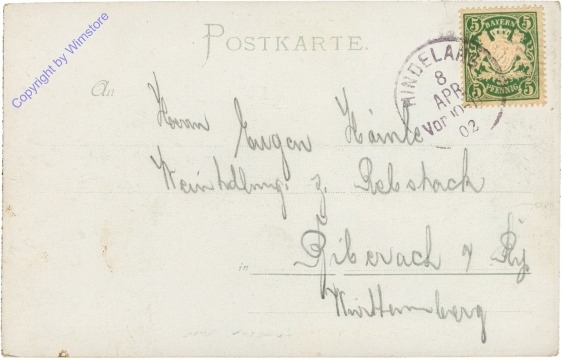 Copyright by Wimstore
POSTKARTE.
BAYERN
5 5
5 PFENNIG 5
HINDELANG
8
APR
VOR
02
An
Herrn Eugen
Weinhdlung. z. Rebstock
in Biberach
Württemberg